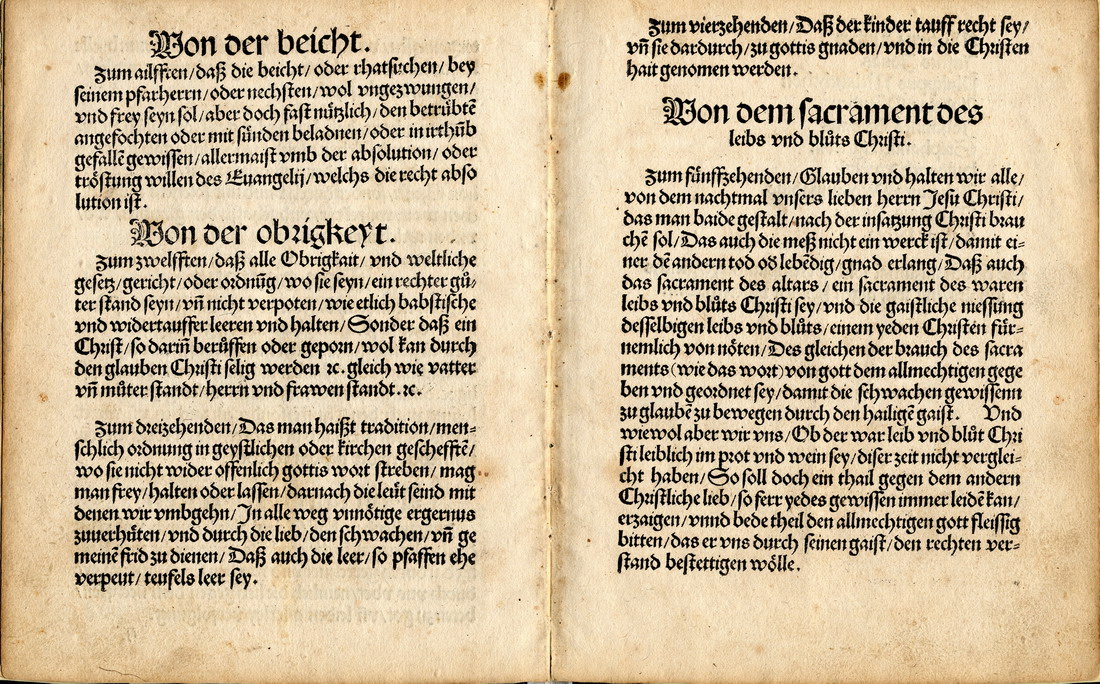 Von der beicht.
Zum ailfften/daß die beicht/oder rhatsuchen/bey
seinem pfarherrn/oder nechsten/wol vngezwungen/
vnd frey seyn sol/aber doch fast nützlich/den betrübtē
angefochten oder mit sünden beladnen/oder in irthūb
gefallē gewissen/allermaist vmb der absolution/oder
tröstung willen des Euangelij/welchs die recht abso
lution ist.
Von der obrigkeyt.
Zum zwelfften/daß alle Obrigkait/vnd weltliche
gesetz/gericht/oder ordnūg/wo sie seyn/ein rechter gů-
ter stand seyn/vn̄ nicht verpoten/wie etlich babstische
vnd widertauffer leeren vnd halten/Sonder daß ein
Christ/so darin̄ berůffen oder geporn/wol kan durch
den glauben Christi selig werden ꝛc. gleich wie vatter
vn̄ můter standt/herrn vnd frawen standt.ꝛc.
Zum dreizehenden/Das man haißt tradition/men-
schlich ordnung in geystlichen oder kirchen gescheff̄tē/
wo sie nicht wider offenlich gottis wort streben/mag
man frey/halten oder lassen/darnach die leüt seind mit
denen wir vmbgehn/In alle weg vnnötige ergernus
zuuerhüten/vnd durch die lieb/den schwachen/vn̄ ge
meinē frid zu dienen/Daß auch die leer/so pfaffen ehe
verpeut/teufels leer sey.
Zum vierzehenden/Daß der kinder tauff recht sey/
vn̄ sie dardurch/zu gottis gnaden/vnd in die Christen
hait genomen werden.
Von dem sacrament des
leibs vnd blůts Christi.
Zum fünffzehenden/Glauben vnd halten wir alle/
von dem nachtmal vnsers lieben herrn Jesu Christi/
das man baide gestalt/nach der insatzung Christi brau
chē sol/Das auch die meß nicht ein werck ist/damit ei-
ner dē andern tod od̄ lebēdig/gnad erlang/Daß auch
das sacrament des altars/ein sacrament des waren
leibs vnd blůts Christi sey/vnd die gaistliche niessūg
desselbigen leibs vnd blůts/einem yeden Christen für-
nemlich von nöten/Des gleichen der brauch des sacra
ments (wie das wort) von gott dem allmechtigen gege
ben vnd geordnet sey/damit die schwachen gewissenn
zu glaubē zu bewegen durch den hailigē gaist. Vnd
wiewol aber wir vns/Ob der war leib vnd blůt Chri
sti leiblich im prot vnd wein sey/diser zeit nicht verglei-
cht haben/So soll doch ein theil gegen dem andern
Christliche lieb/so ferr yedes gewissen immer leidē kan/
erzaigen/vnnd bede theil den allmechtigen gott fleissig
bitten/das er vns durch seinen gaist/den rechten ver-
stand bestettigen wölle.